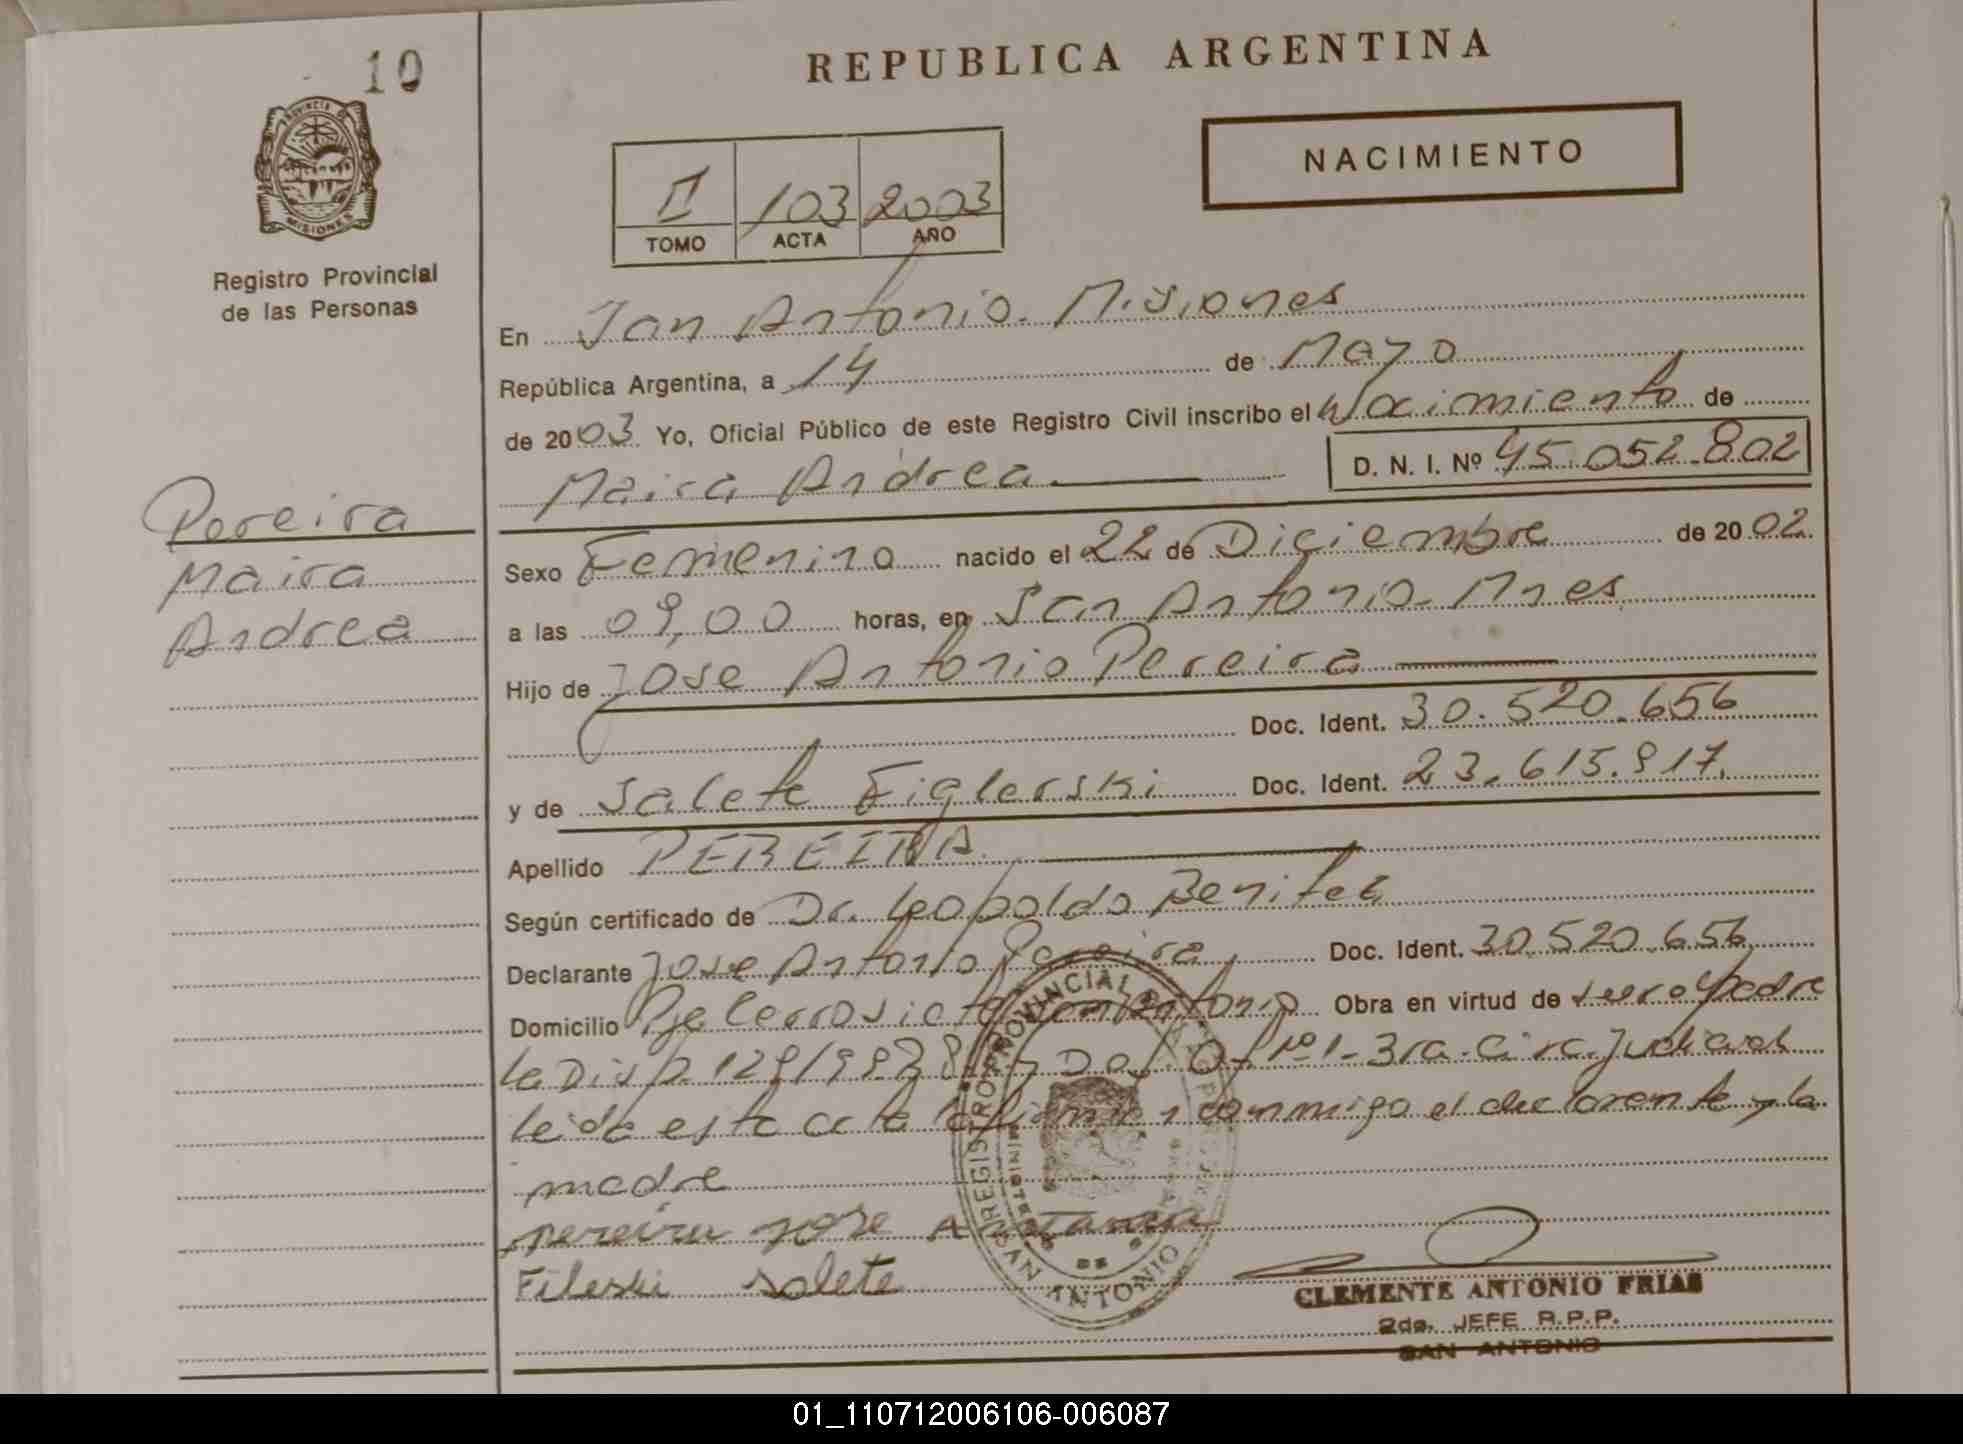 10
PROVINCIA DE
MISIONES
Registro Provincial
de las Personas
Pereira
Maira
Andrea
REPUBLICA ARGENTINA
NACIMIENTO
II 103 2003
TOMO ACTA AÑO
En San Antonio. Misiones
República Argentina, a 14 de Mayo
de 2003 Yo, Oficial Público de este Registro Civil inscribo el Nacimiento de
Maira Andrea D. N. I. Nº 45.052.802
Sexo Femenino nacido el 22 de Diciembre de 2002.
a las 09,00 horas, en San Antonio Mnes
Hijo de Jose Antonio Pereira
Doc. Ident. 30.520.656
y de Salete Figlerski Doc. Ident. 23.615.917.
Apellido PEREIRA.
Según certificado de Dr. Leopoldo Benitez
Declarante Jose Antonio Pereira Doc. Ident. 30.520.656
Domicilio Pje Cerrosito Obra en virtud de ser el Padre
la Disp. 129/99 Nº 1- 3ra. Circ. Judicial
leida esta acta la conmigo el declarante y la
madre
pereira jose
Fileski salete
REGISTRO PROVINCIAL DE LAS PERSONAS
SAN ANTONIO
CLEMENTE ANTONIO FRIAS
2do. JEFE R.P.P.
SAN ANTONIO
01_110712006106-006087